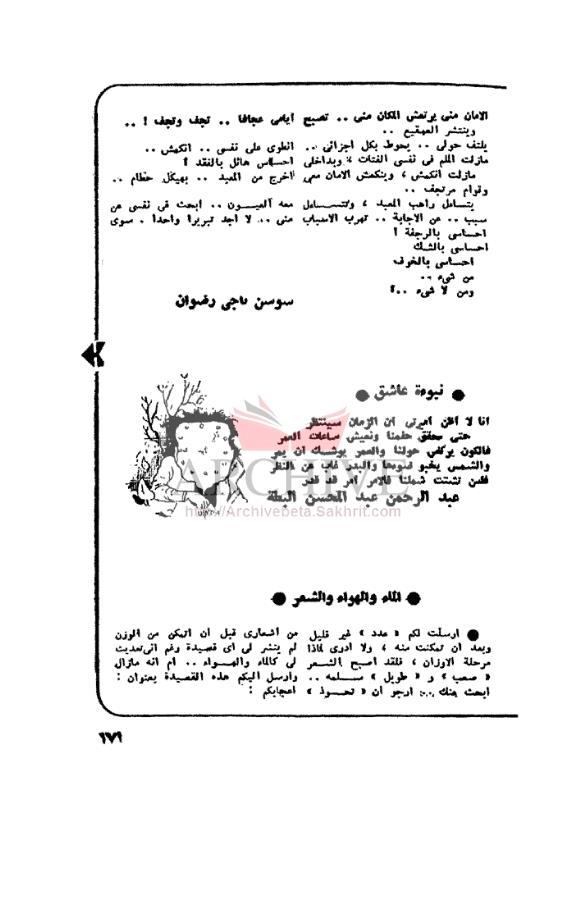 الامان منى يرتعش المكان منى .. تصبح أيامى عجافا .. تجف وتجف ! ..
وينتشر الصقيع ..
يلتف حولى .. يحوط بكل أجزائى ..
مازلت ألملم فى نفسى الفتات ، وبداخلى
مازلت أنكمش ، وينكمش الامان معى
وقوام مرتجف ..
يتساءل راهب المعبد ، وتتساءل
سبب .. عن الاجابة .. تهرب الاسباب
احساسى بالرجفة !
احساسى بالشك
احساسى بالخوف
من شىء ..
ومن لا شىء ..؟
انطوى على نفسى .. أنكمش ..
احساس هائل بالفقد !
أخرج من المعبد .. بهيكل حطام ..
معه العيون .. أبحث فى نفسى عن
منى .. لا أجد تبريرا واحدا . سوى
سوسن ناجى رضوان
● نبوءة عاشق ●
أنا لا أظن أميرتى أن الزمان سينتظر
حتى نحقق حلمنا ونعيش ساعات العمر
فالكون يركض حولنا والعمر يوشك أن يمر
والشمس يخبو ضوءها والبدر غاب عن النظر
فلئن تشتت شملنا فالامر أمر قد قدر
عبد الرحمن عبد المحسن البطة
● الماء والهواء والشعر ●
● أرسلت لكم « عدد » غير قليل
وبعد أن تمكنت منه ، ولا أدرى لماذا
مرحلة الاوزان ، فلقد أصبح الشعر
« صعب » و « طويل » سلمه ..
ابحث عنك ... أرجو أن « تحوذ »
من أشعارى قبل أن أتمكن من الوزن
لم ينشر لى أى قصيدة رغم أنى تعديت
لى كالماء والهواء .. أم أنه مازال
وأرسل اليكم هذه القصيدة بعنوان :
اعجابكم :
ARCHIVE
http://Archivebeta.Sakhrit.com
١٧٩